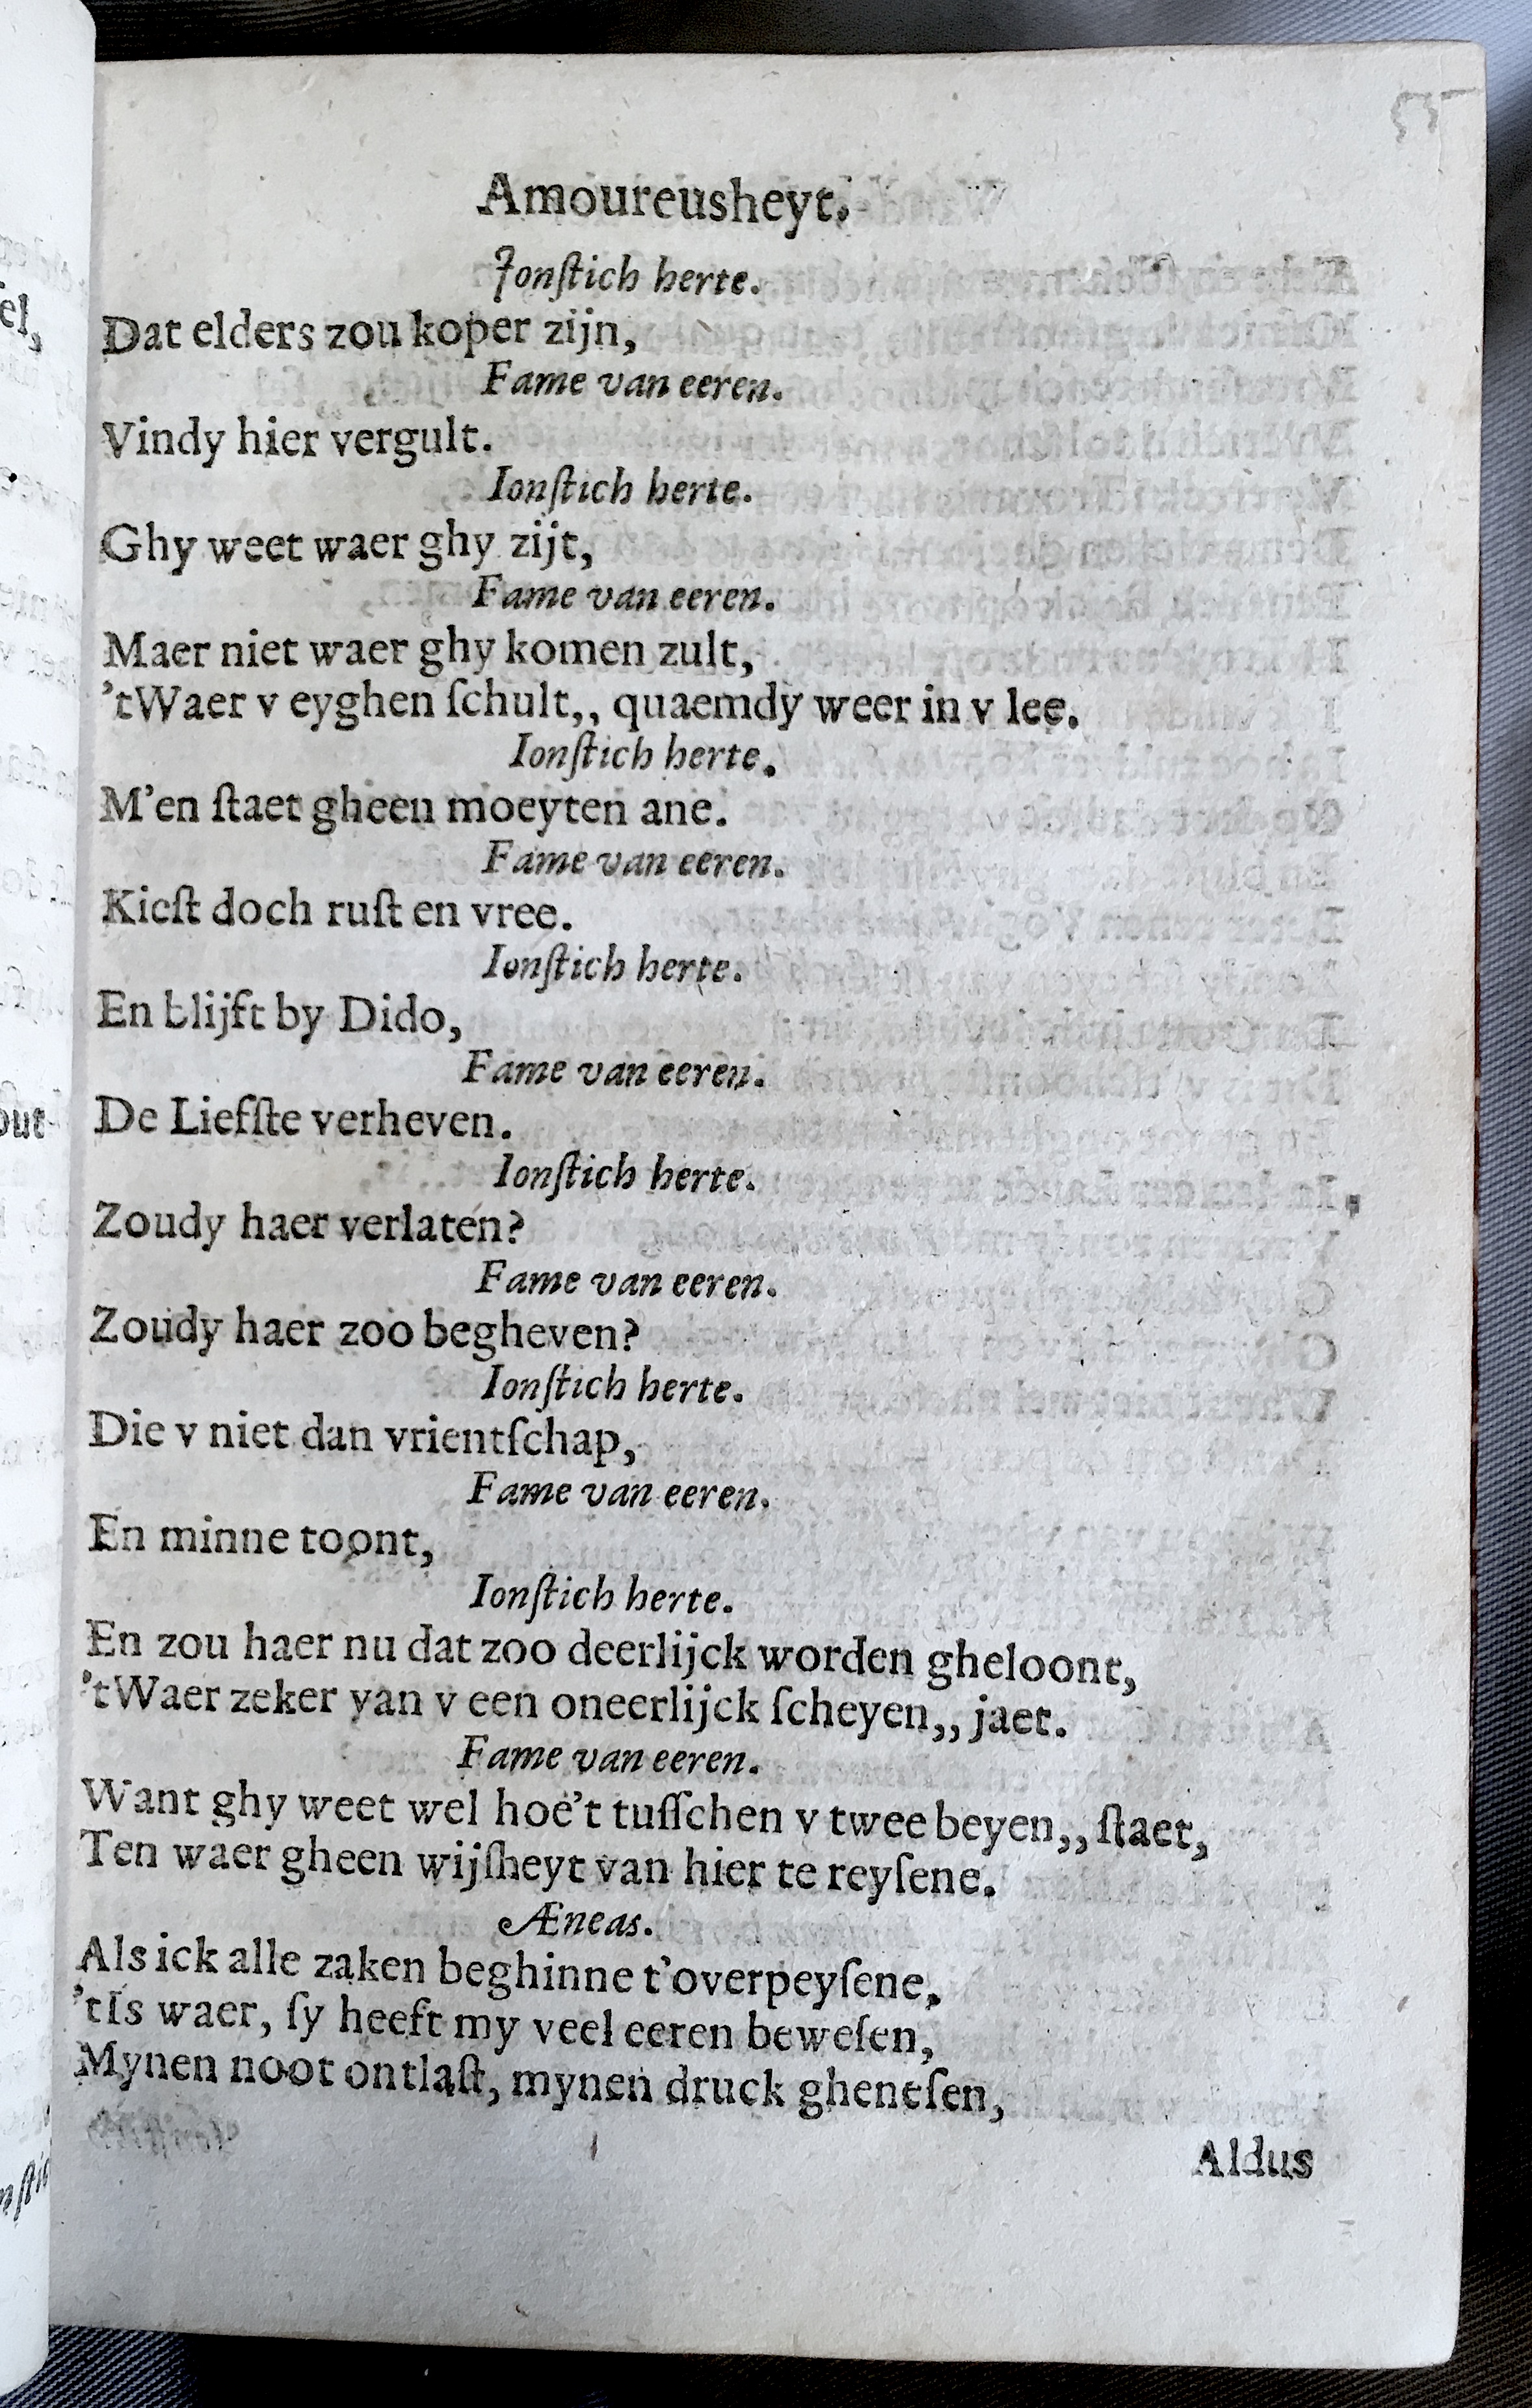 Amoureusheyt.
Jonſtich herte.
Dat elders zou koper zijn,
Fame van eeren.
Vindy hier vergult.
Ionſtich herte.
Ghy weet waer ghy zijt,
Fame van eeren.
Maer niet waer ghy komen zult,
'tWaer v eyghen ſchult,, quaemdy weer in v lee.
Ionſtich herte.
M'en ſtaet gheen moeyten ane.
Fame van eeren.
Kieſt doch ruſt en vree.
Ionſtich herte.
En blijft by Dido,
Fame van eeren.
De Liefſte verheven.
Ionſtich herte.
Zoudy haer verlaten?
Fame van eeren.
Zoudy haer zoo begheven?
Ionſtich herte.
Die v niet dan vrientſchap,
Fame van eeren.
En minne toont,
Ionſtich herte.
En zou haer nu dat zoo deerlijck worden gheloont,
'tWaer zeker van v een oneerlijck ſcheyen,, jaet.
Fame van eeren.
Want ghy weet wel hoe't tuſſchen v twee beyen,, ſtaet,
Ten waer gheen wijſheyt van hier te reyſene.
Æneas.
Als ick alle zaken beghinne t'overpeyſene,
'tIs waer, ſy heeft my veel eeren beweſen,
Mynen noot ontlaſt, mynen druck gheneſen,
Aldus